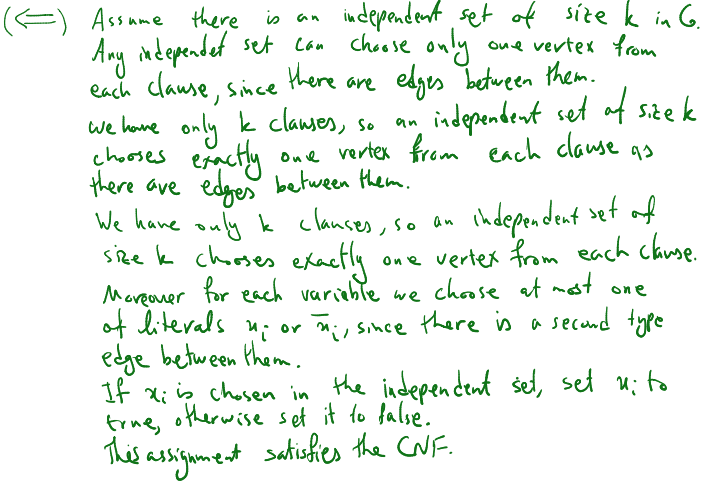 (⇐) Assume there is an independent set of size k in G.
Any independet set can choose only one vertex from
each clause, since there are edges between them.
we have only k clauses, so an independent set of size k
chooses exactly one vertex from each clause as
there are edges between them.
We have only k clauses, so an independent set of
size k chooses exactly one vertex from each clause.
Moreover for each variable we choose at most one
of literals x_i or x̅_i, since there is a second type
edge between them.
If x_i is chosen in the independent set, set x_i to
true, otherwise set it to false.
This assignment satisfies the CNF.